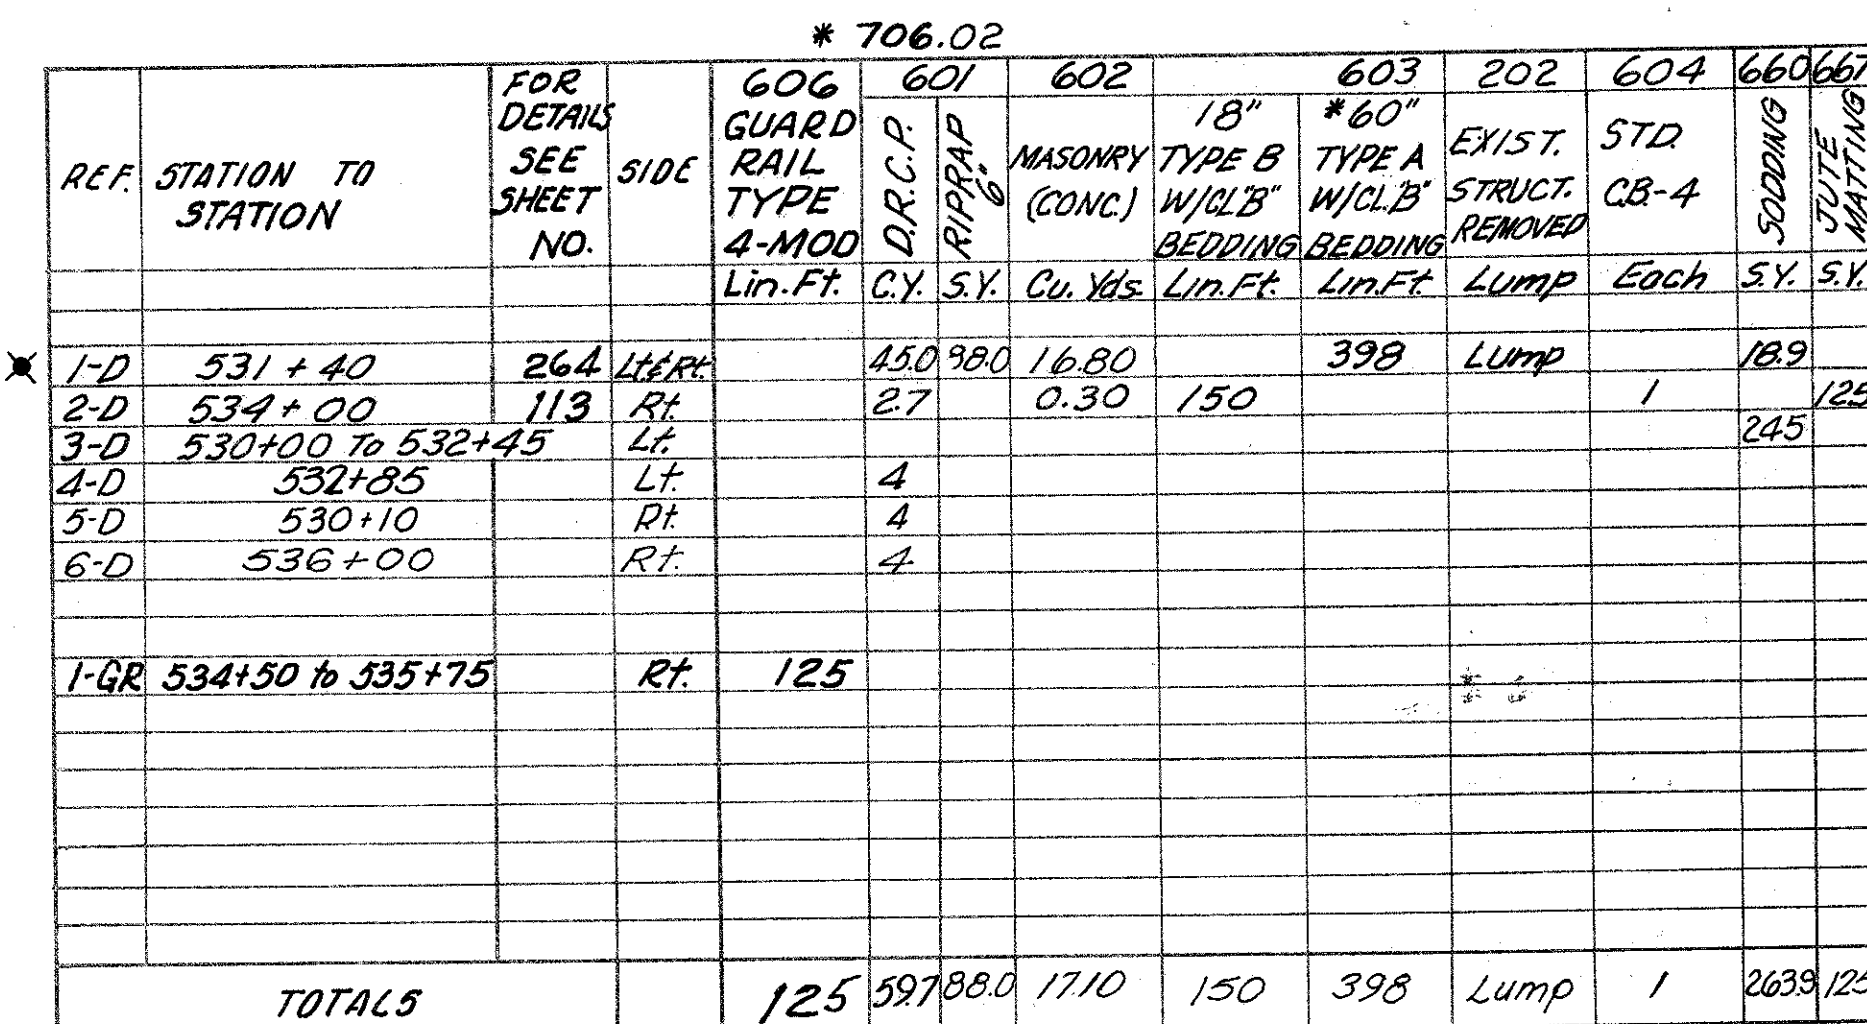 * 706.02
606 601 602 603 202 604 660 667
REF. STATION TO STATION FOR DETAILS SEE SHEET NO. SIDE GUARD RAIL TYPE 4-MOD D.R.C.P. RIPRAP 6" MASONRY (CONC.) 18" TYPE B W/CL."B" BEDDING *60" TYPE A W/CL."B" BEDDING EXIST. STRUCT. REMOVED STD. C.B.-4 SODDING JUTE MATTING
Lin.Ft. C.Y. S.Y. Cu. Yds. Lin.Ft. Lin.Ft. Lump Each S.Y. S.Y.
1-D 531+40 264 Lt&Rt. 45.0 88.0 16.80 398 Lump 18.9
2-D 534+00 113 Rt. 2.7 0.30 150 1 125
3-D 530+00 To 532+45 Lt. 245
4-D 532+85 Lt. 4
5-D 530+10 Rt. 4
6-D 536+00 Rt. 4
1-GR 534+50 to 535+75 Rt. 125
TOTALS 125 59.7 88.0 17.10 150 398 Lump 1 263.9 125